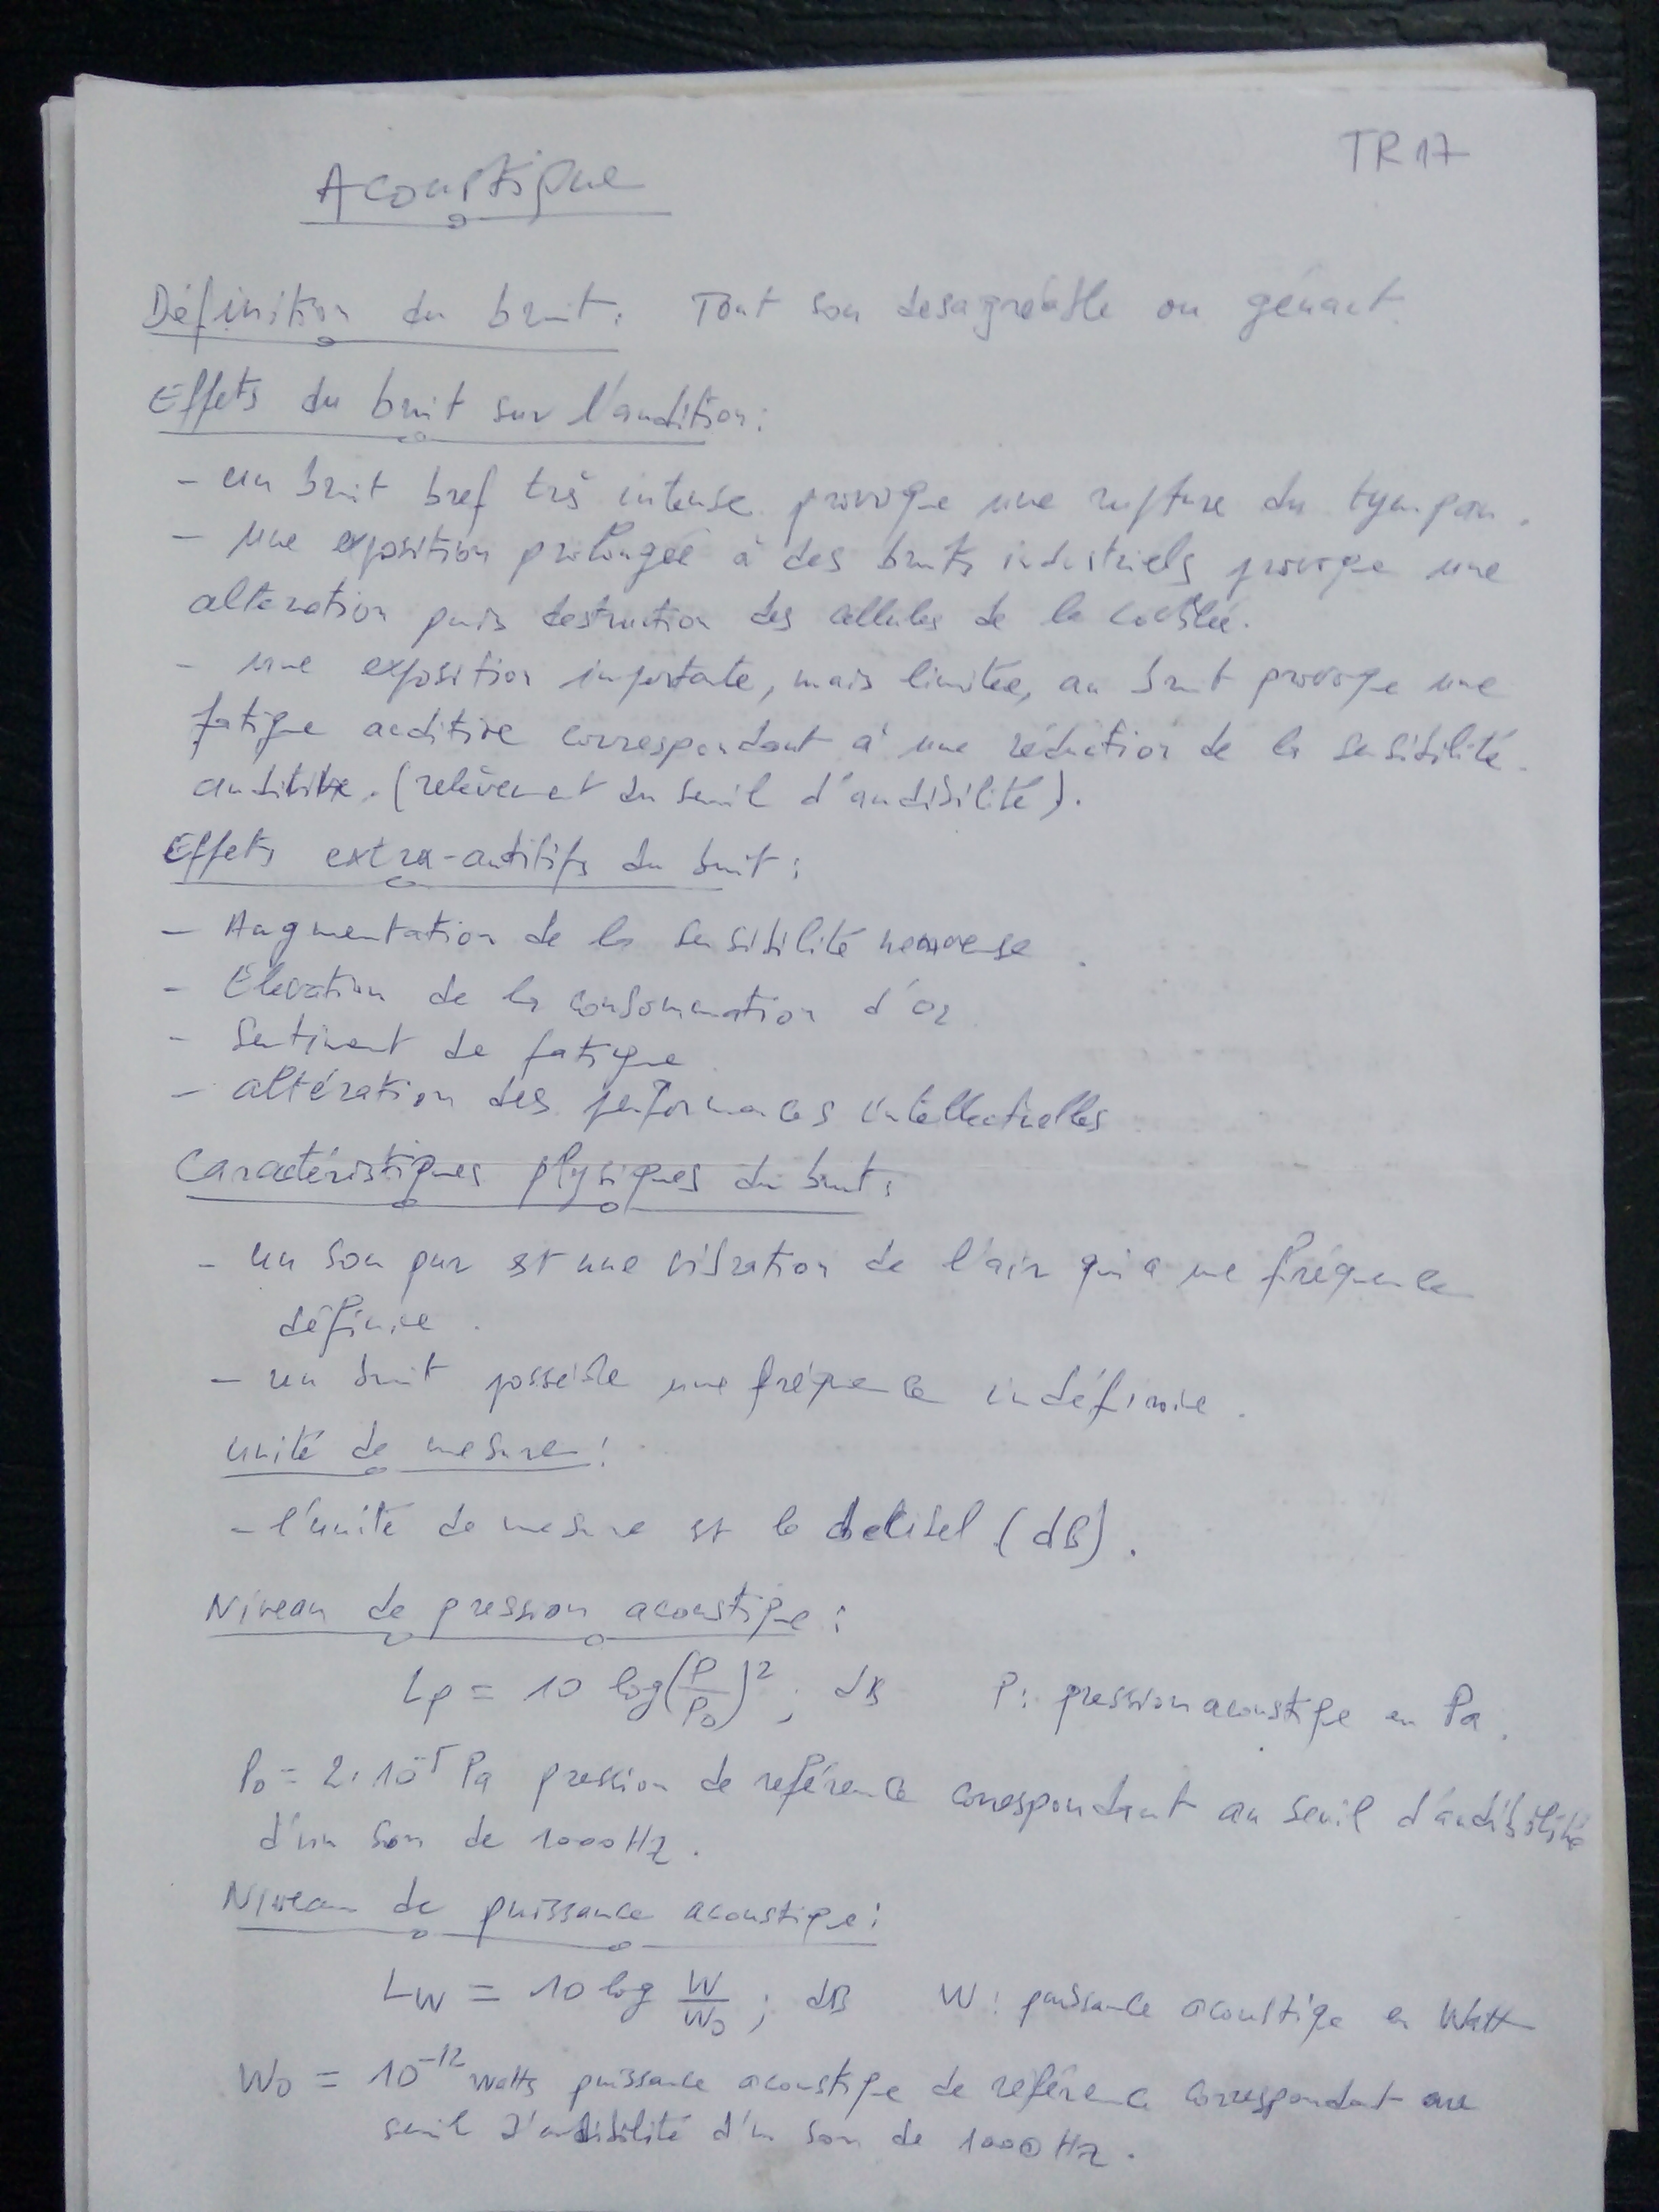 TR 17
Acoustique
Définition du bruit : Tout son desagréable ou génant.
Effets du bruit sur l'audition :
- un bruit bref très intense provoque une rupture du tympan.
- une exposition prolongée à des bruits industriels provoque une
altération puis destruction des cellules de la cochlée.
- une exposition importante, mais limitée, au bruit provoque une
fatigue auditive correspondant à une réduction de la sensibilité
auditive. (relèvement du seuil d'audibilité).
Effets extra-auditifs du bruit :
- Augmentation de la sensibilité nerveuse.
- Elevation de la consommation d'O2
- Sentiment de fatigue
- altération des performances intellectuelles
Caractéristiques physiques du bruit :
- un son pur est une vibration de l'air qui a une fréquence
définie.
- un bruit possède une fréquence indéfinie.
unité de mesure :
- l'unité de mesure est le décibel (dB).
Niveau de pression acoustique :
Lp = 10 log(P/P0)² ; dB P : pression acoustique en Pa.
P0 = 2.10⁻⁵ Pa pression de référence correspondant au seuil d'audibilité
d'un son de 1000 Hz.
Niveau de puissance acoustique :
LW = 10 log W/W0 ; dB W : puissance acoustique en Watt
W0 = 10⁻¹² watts puissance acoustique de référence correspondant au
seuil d'audibilité d'un son de 1000 Hz.